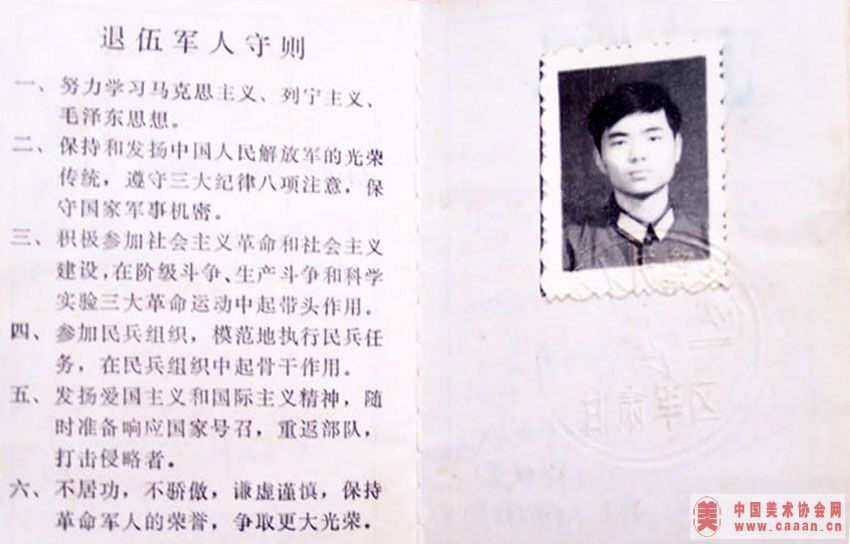 退伍军人守则
一、努力学习马克思主义、列宁主义、
毛泽东思想。
二、保持和发扬中国人民解放军的光荣
传统，遵守三大纪律八项注意，保
守国家军事机密。
三、积极参加社会主义革命和社会主义
建设，在阶级斗争、生产斗争和科学
实验三大革命运动中起带头作用。
四、参加民兵组织，模范地执行民兵任
务，在民兵组织中起骨干作用。
五、发扬爱国主义和国际主义精神，随
时准备响应国家号召，重返部队，
打击侵略者。
六、不居功，不骄傲，谦虚谨慎，保持
革命军人的荣誉，争取更大光荣。
美 中国美术协会网
www.caaan.cn